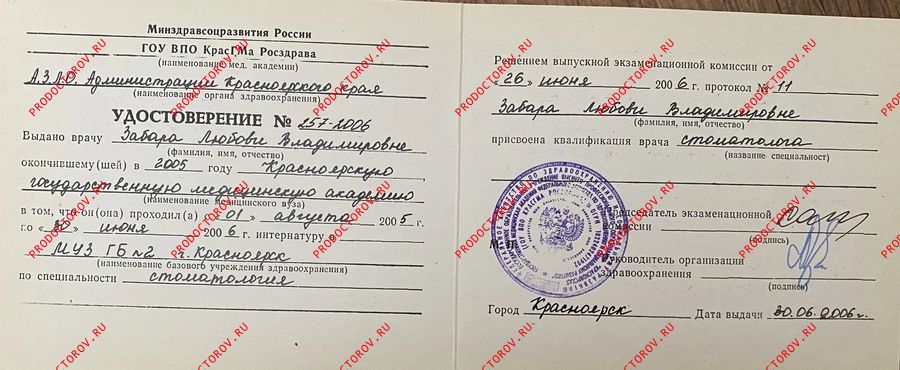 Минздравсоцразвития России
ГОУ ВПО КрасГМа Росздрава
(наименование мед. академии)
А.З.Л.О. Администрации Красноярского края
(наименование органа здравоохранения)
УДОСТОВЕРЕНИЕ № 257-2006
Выдано врачу Забара Любови Владимировне
(фамилия, имя, отчество)
окончившему(шей) в 2005 году Красноярскую
государственную медицинскую академию
(наименование медицинского вуза)
в том, что он(она) проходил(а) с «01» августа 2005 г.
по «30» июня 2006 г. интернатуру в
МУЗ ГБ №2 г. Красноярск
(наименование базового учреждения здравоохранения)
по специальности стоматология
Решением выпускной экзаменационной комиссии от
«26» июня 2006 г. протокол № 11
Забара Любовь Владимировне
(фамилия, имя, отчество)
присвоена квалификация врача стоматолога
(название специальност)
Председатель экзаменационной
комиссии
(подпись)
М.П.
Руководитель организации
здравоохранения
(подпись)
Город Красноярск Дата выдачи 30.06.2006г.
PRODOCTOROV.RU